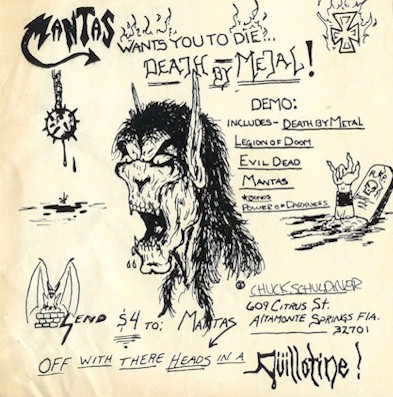 MANTAS
WANTS YOU TO DIE?!..
DEATH BY METAL!
DEMO:
INCLUDES- DEATH BY METAL
LEGION OF DOOM
EVIL DEAD
MANTAS
*BONUS
POWER OF DARKNESS
R.I.P
CHUCK SCHULDINER
609 CITRUS ST.
ALTAMONTE SPRINGS FLA.
32701
SEND $4 TO: MANTAS
OFF WITH THERE HEADS IN A Güillotine!